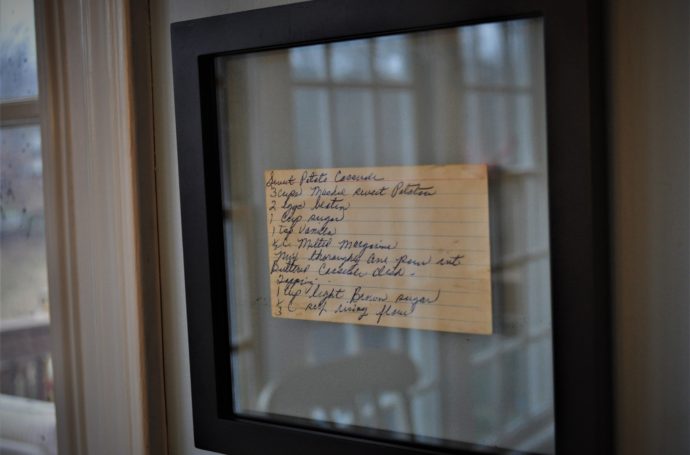 Sweet Potato Casserole
3 cups Mashed sweet Potatoes
2 Eggs beaten
1 Cup sugar
1 tsp Vanilla
½ C Melted Margarine
Mix thoroughly and pour into
Buttered Casserole dish.
Topping:
1 Cup light Brown sugar
⅓ C self rising flour